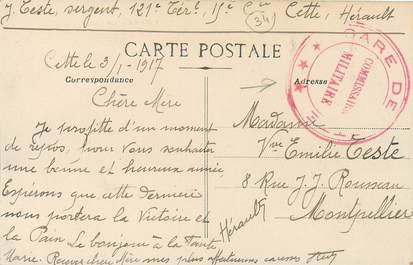 J. Teste, sergent, 121e Terl, 15e Cie Cette, Hérault
34
CARTE POSTALE
Cette le 3/1-1917
Correspondance
Adresse
GARE DE
COMMISSAIRE
MILITAIRE
Chère Mère
Je profitte d'un moment
de repos, pour vous souhaiter
une bonne et heureux année
Espérons que cette dernière
nous portera la Victoire et
la Paix Le bonjour à la Tante
Marie. Recevez chère Mère mes plus affectueuses caresses
Madame
Vve Emilie Teste
8 Rue J. J. Rousseau
Montpellier
Hérault